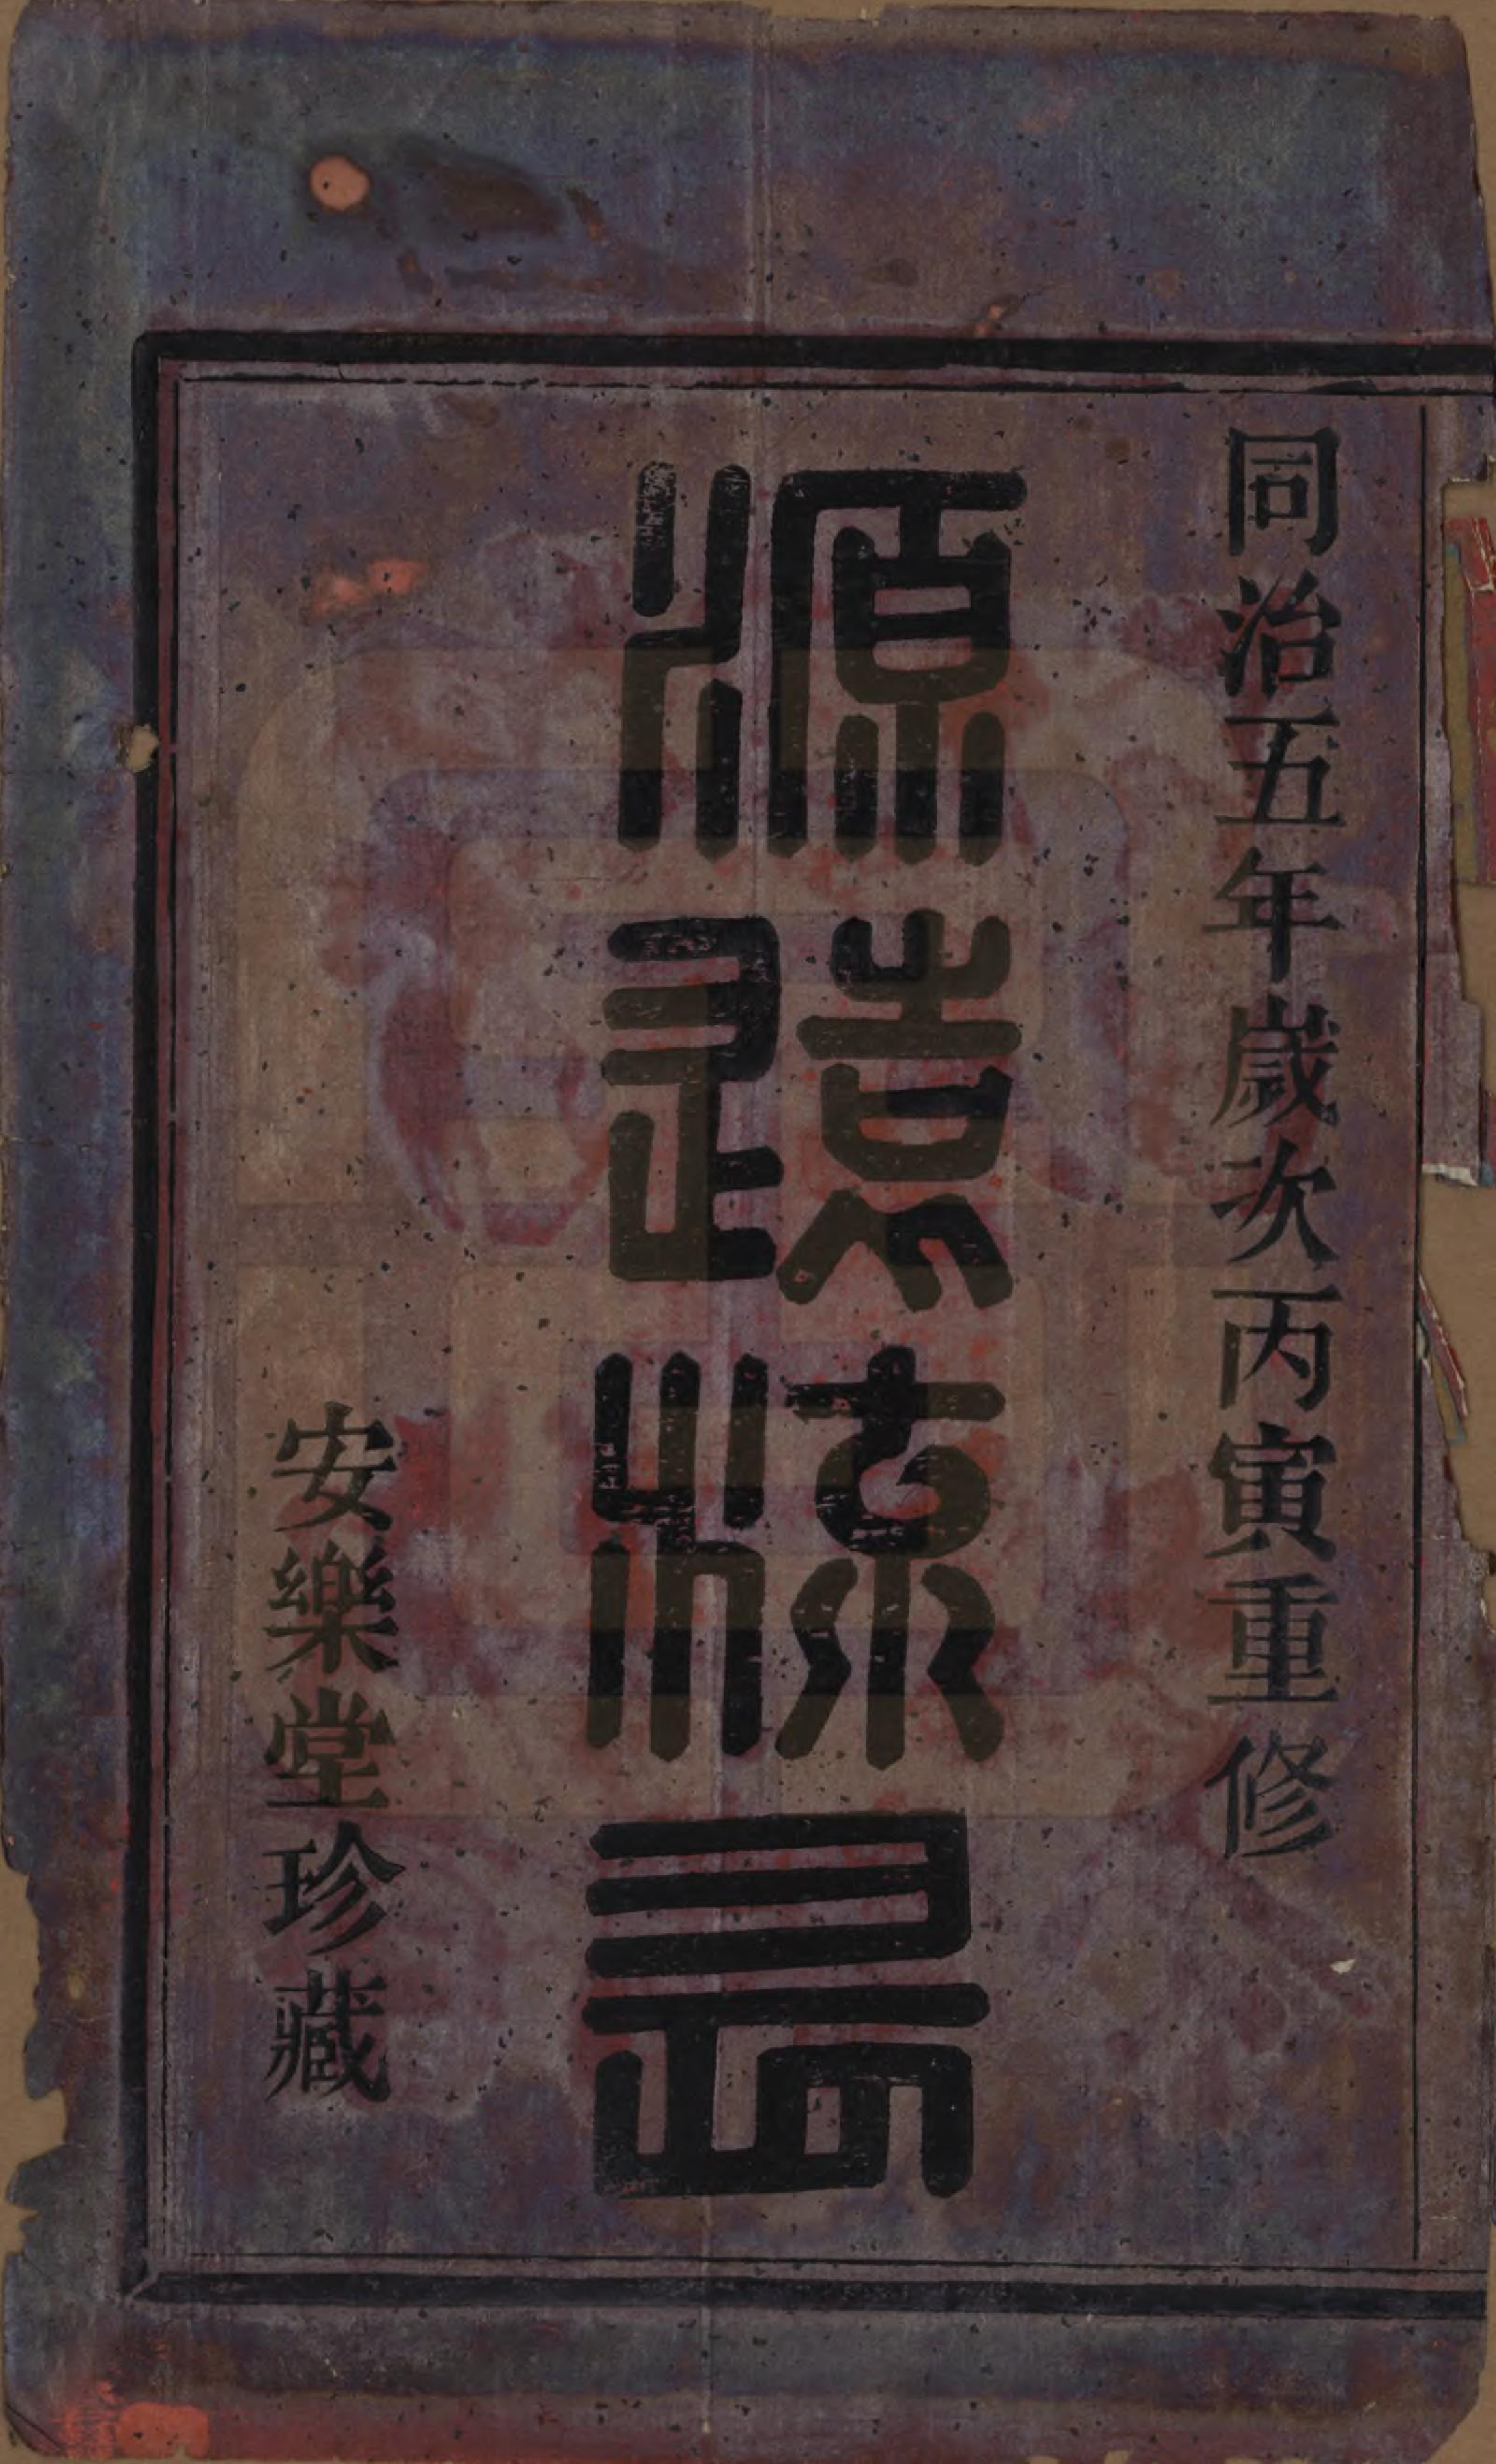 同治五年歲次丙寅重修
源遠流長
安樂堂珍藏